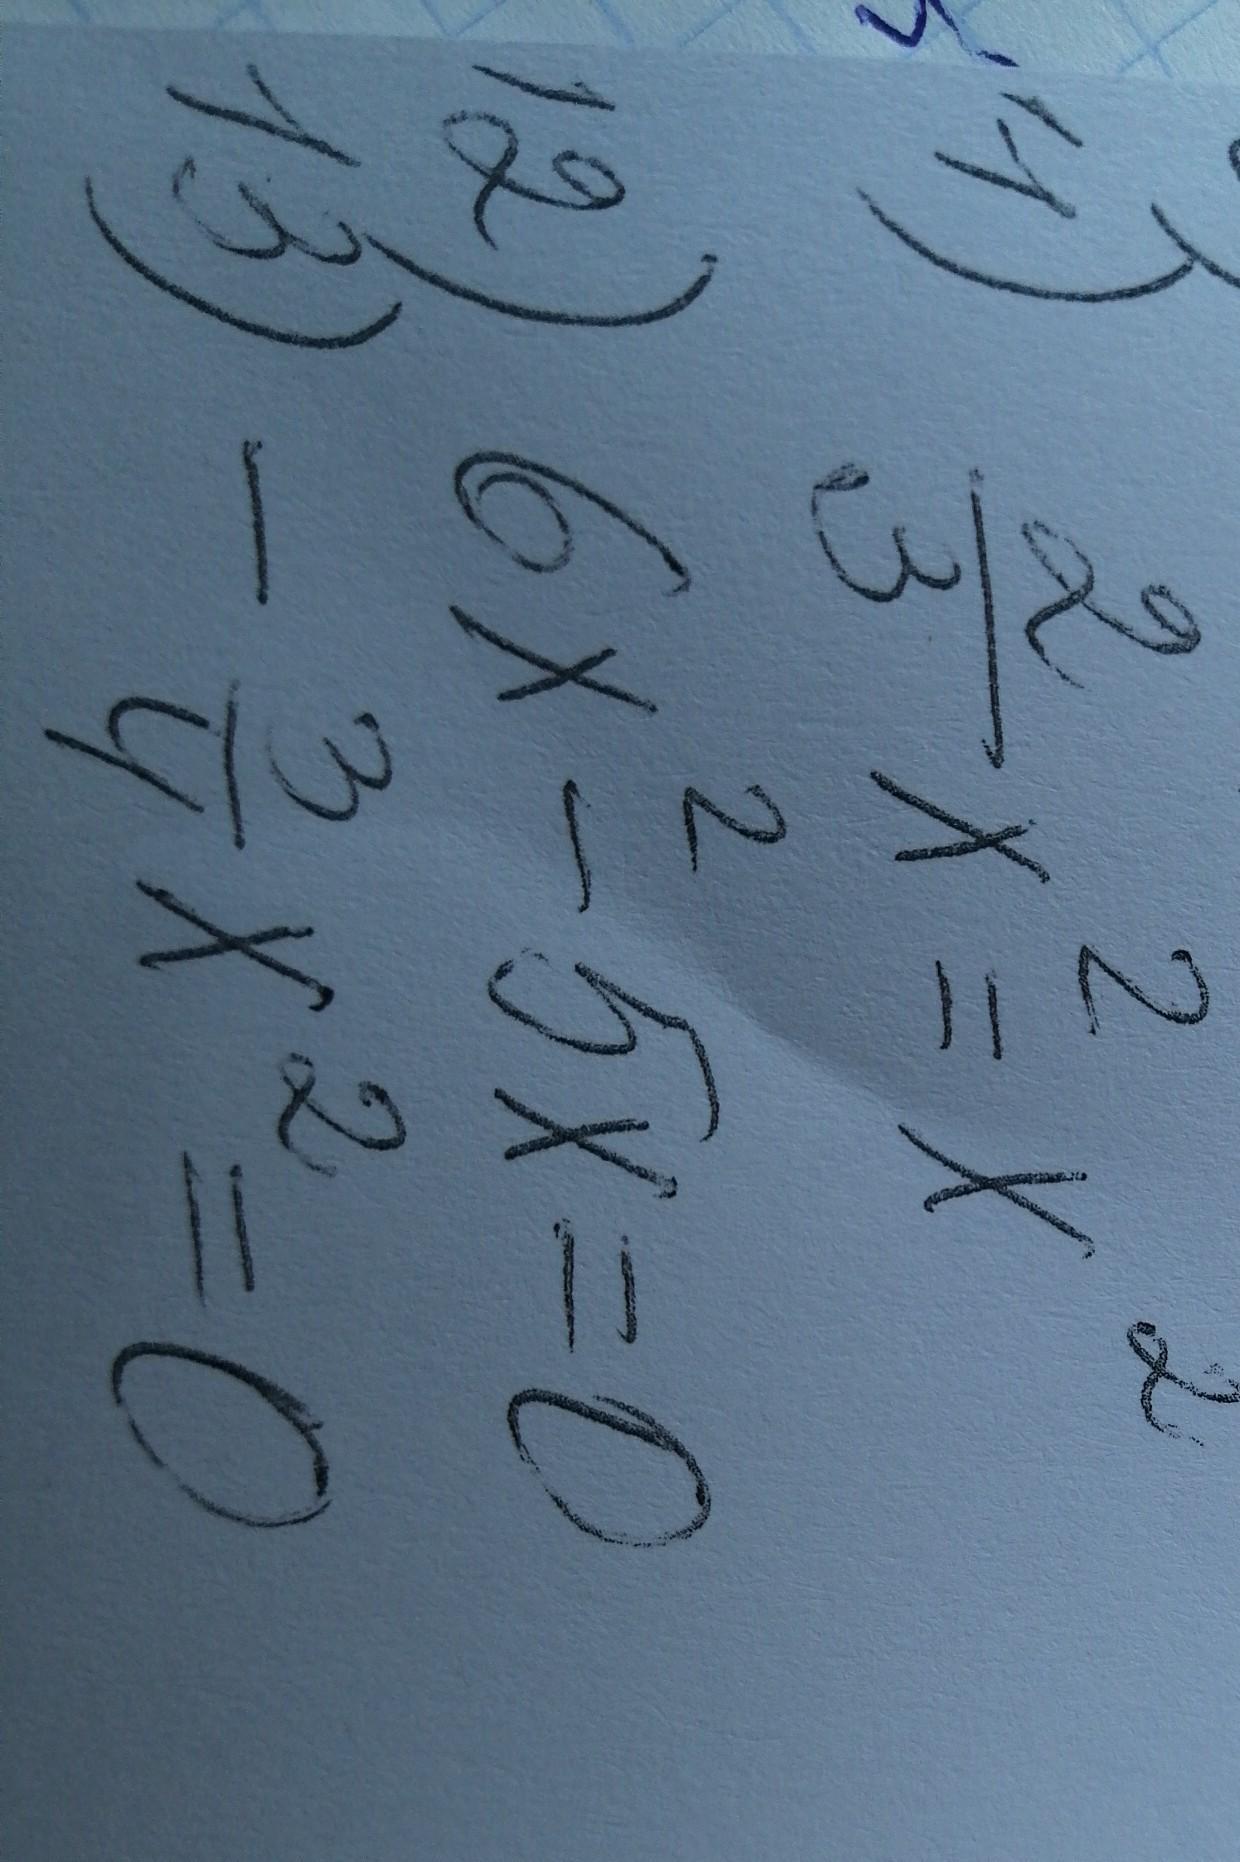 11) 2/3 x² = x
12) 6x² - 5x = 0
13) - 3/4 x² = 0